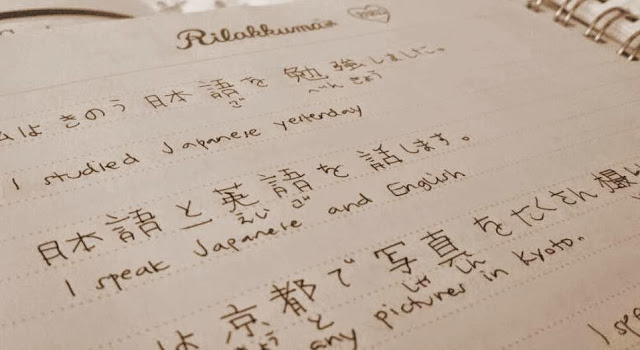 Rilakkuma
は きのう 日本語を 勉強しました。
ご べん きょう
I studied Japanese yesterday
日本語と英語を話します。
えい ご
I speak Japanese and English
は京都で写真をたくさん撮
と しゃ しん
any pictures in Kyoto.
I spe